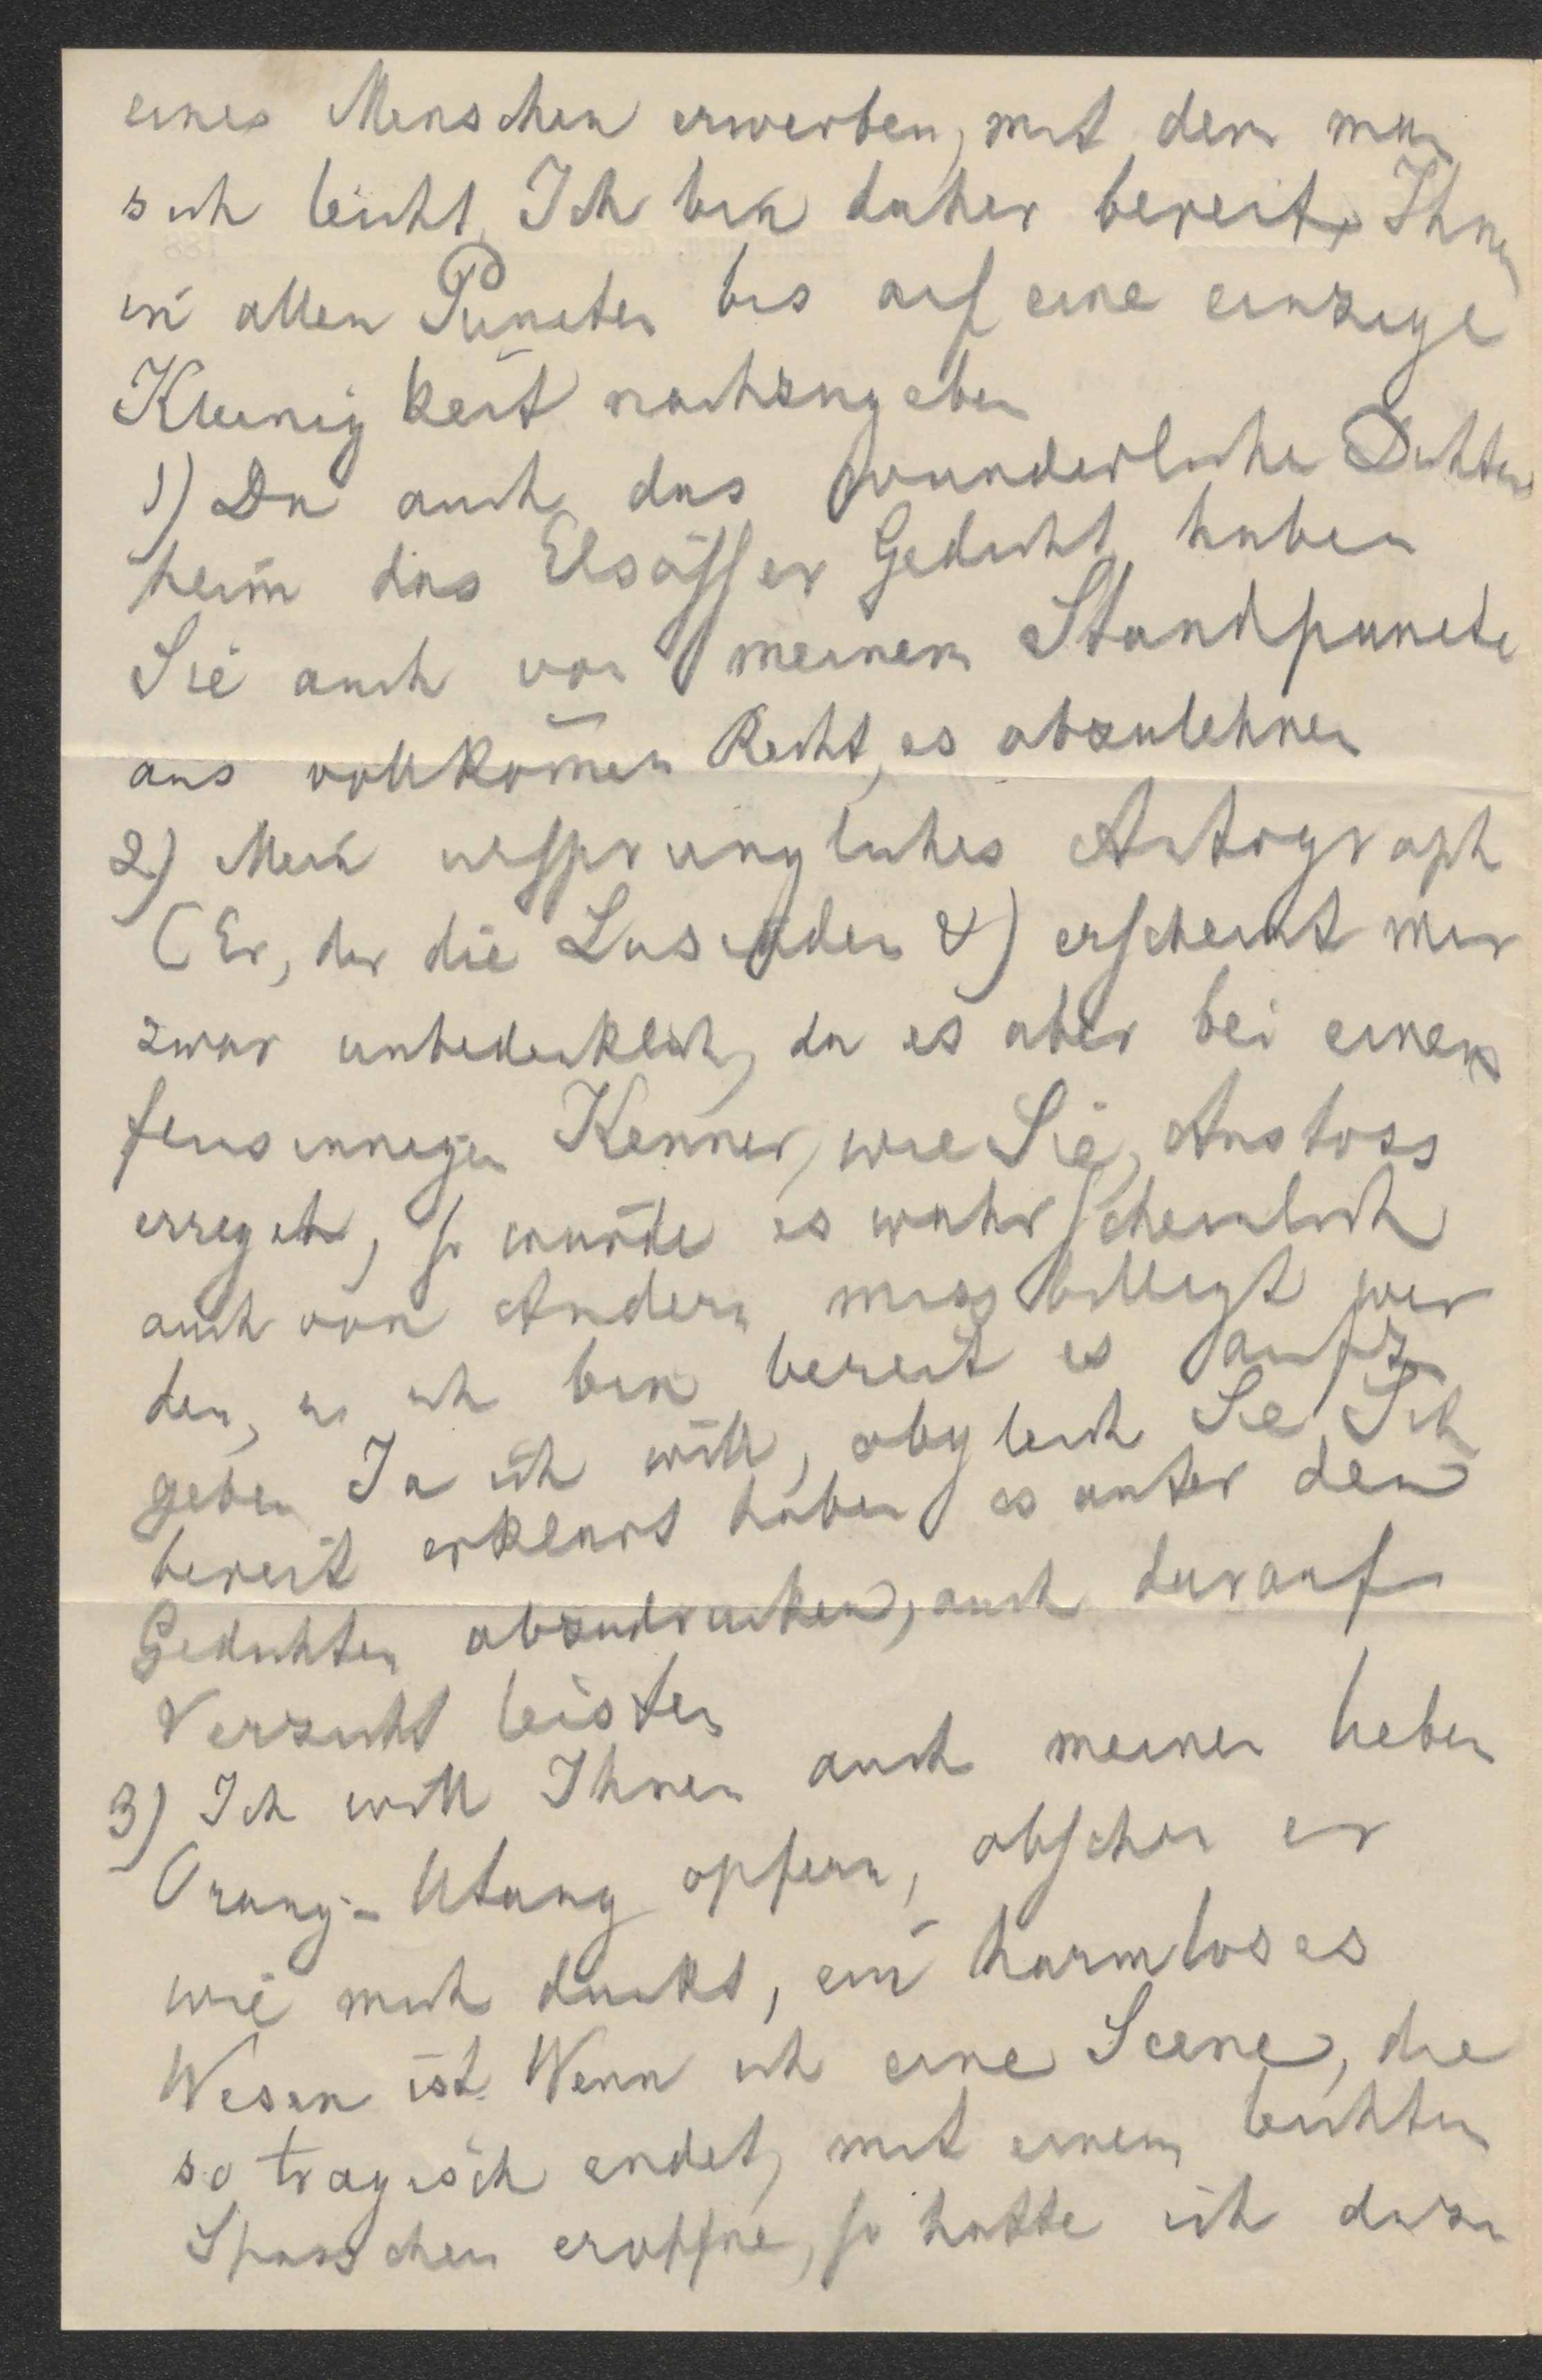 eines Menschen erwerben, mit dem man
sich leicht. Ich bin daher bereit, Ihnen
in allen Puncten bis auf eine einzige
Kleinigkeit nachzugeben
1) Da auch das wunderliche Dichter
heim das Elsässer Gedicht haben
Sie auch von meinem Standpuncte
aus vollkom̄en Recht, es abzulehnen
2) Mein ursprungliches Autograph
(Er, der die &) erscheint mir
zwar unbedenklich, da es aber bei einem
feinsinnigen Kenner, wie Sie, Anstoss
erregte, so wurde es wahrscheinlich
auch von Andern missbilligt wer
den, u ich bin bereit es aufzu
geben Ja ich will, obgleich Sie Sich
bereit erklart haben es unter den
Gedichten abzudrucken, auch darauf
Verzicht leisten
3) Ich will Ihnen auch meinen lieben
Orang-Utang opfern, obschon er
wie mich dunkt, ein harmloses
Wesen ist. Wenn ich eine Scene, die
so tragisch endet, mit einem leichten
Spasschen eroffne, so hatte ich dazu